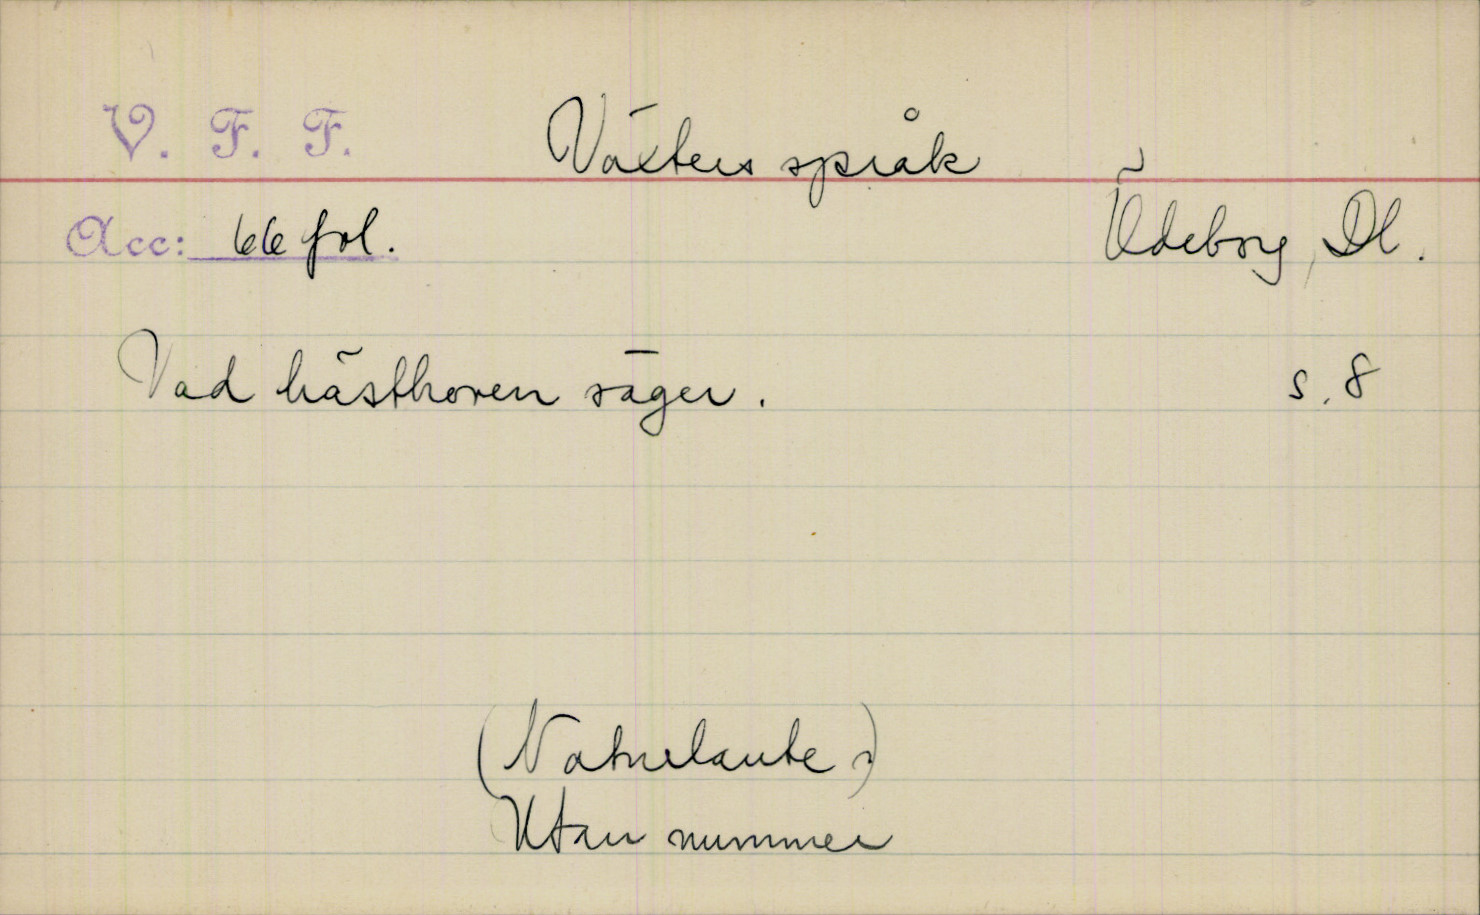 V. F. F.
Växters språk
Acc: 66 fol.
Ödeborg, Dl.
Vad hästhoven säger. s. 8
(Naturlaute)
Utan nummer